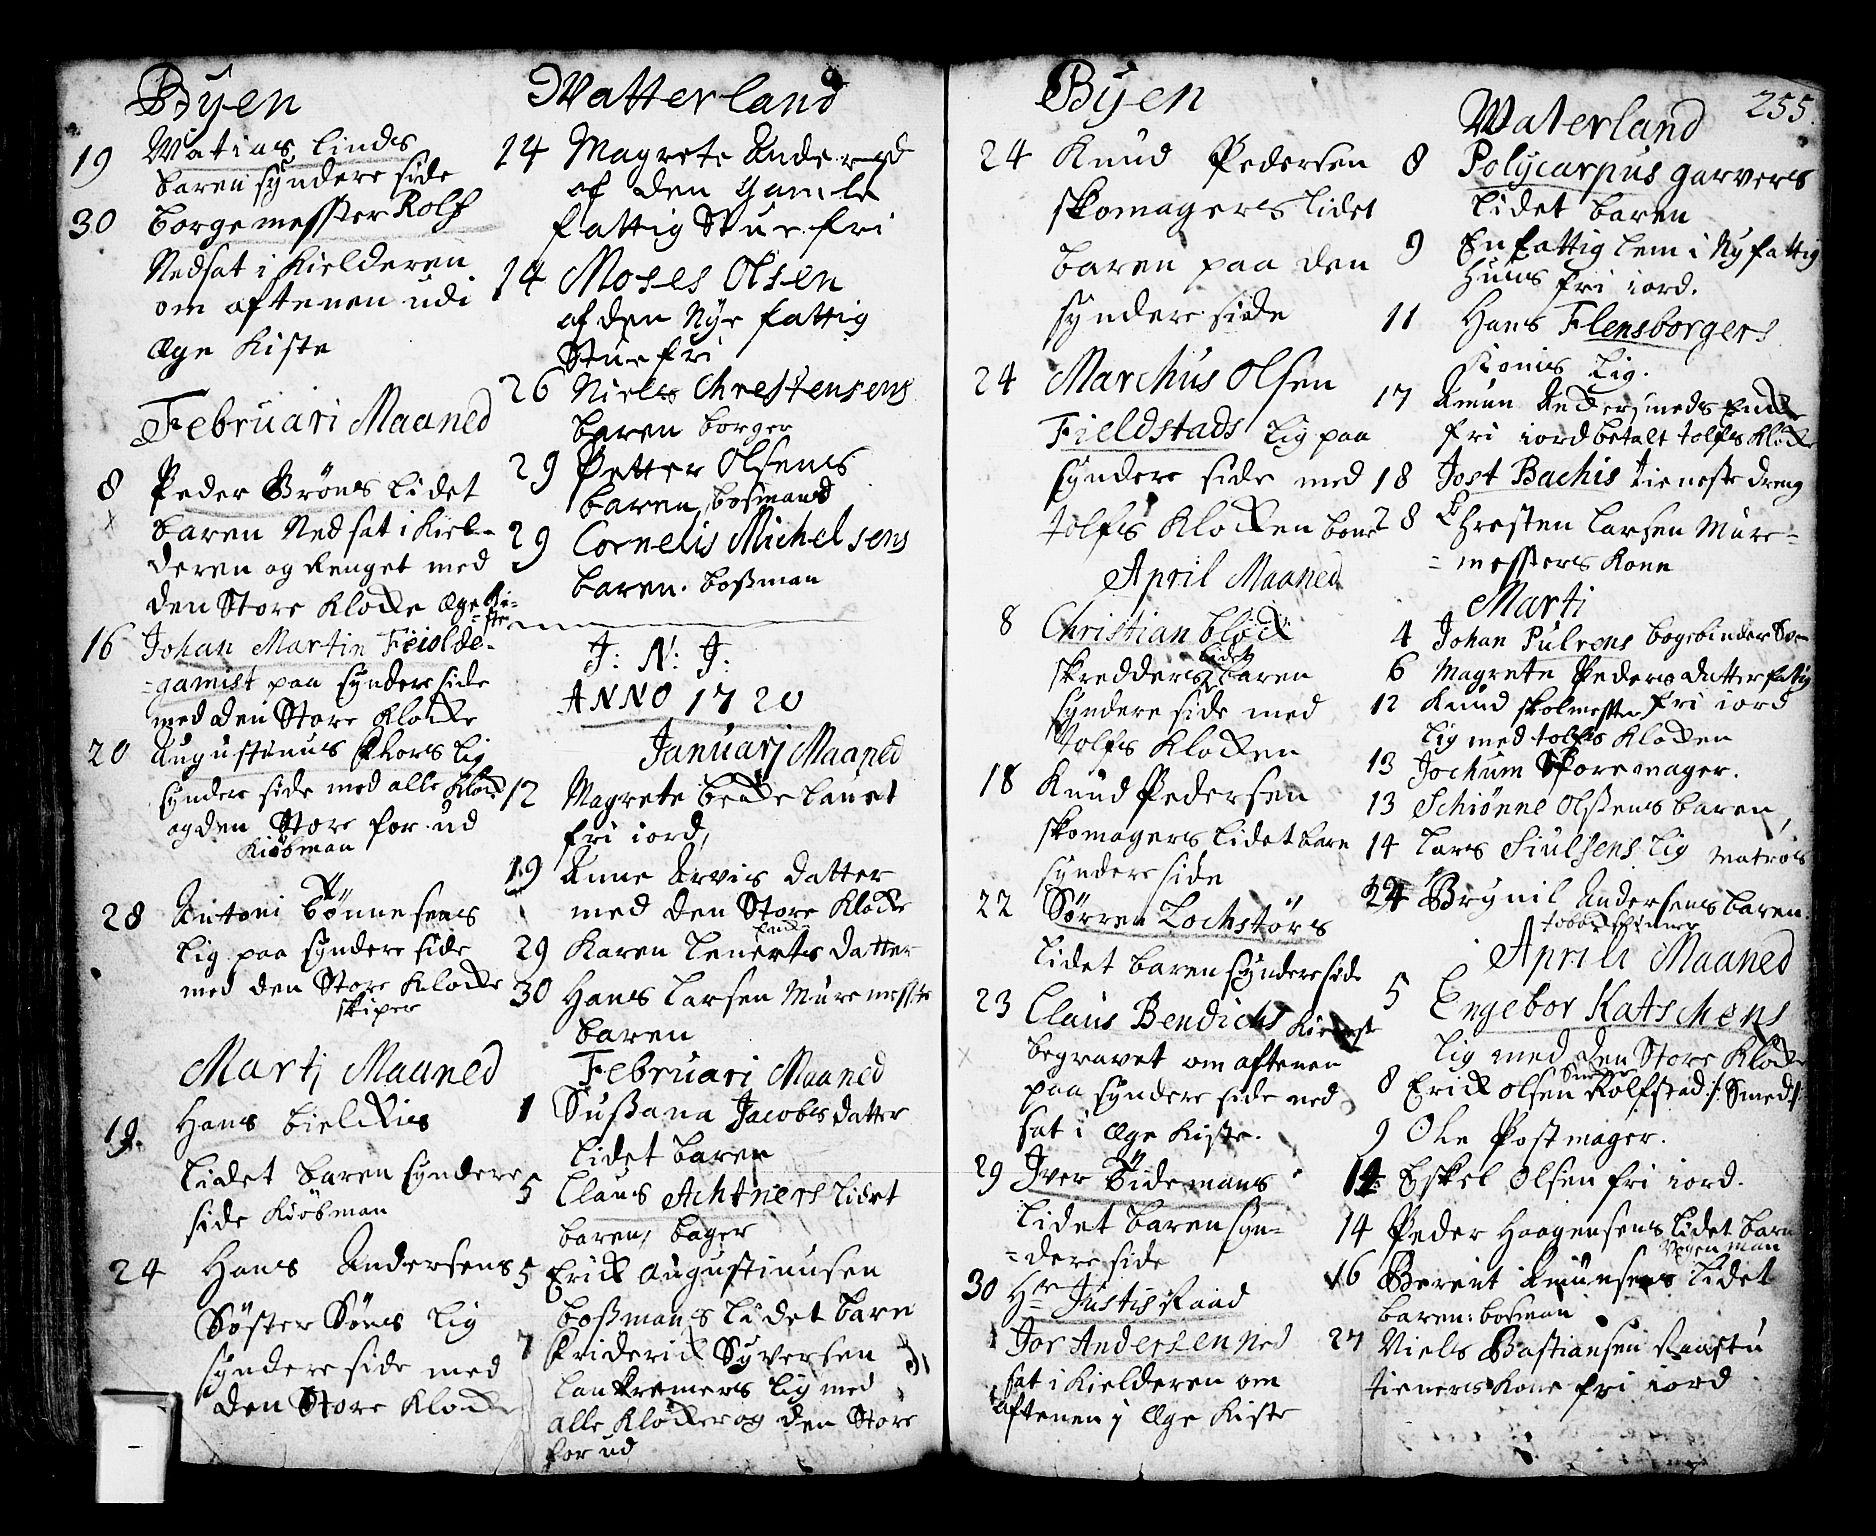 Byen
19 Matias Linds
baren syndere side
30 borgemesster Rolf
Nedsat i Kielderen
om aftenen udi
æge Kiste
Februari Maaned
8 Peder Bröns lidet
baren Nedsat i Kiel-
deren og Renget med
den Store Klocke æge Ki=
=ste
16 Johan Martin Feiolde-
=gamist paa syndere side
med den Store Klocke
20 Augustinus Thors lig
syndere side med alle Klock
og den Store for ud
Kiöbman
28 Antoni bönnesens
lig paa syndere side
med den Store Klocke
skiper
Martj Maaned
19. Hans bielckis
lidet baren syndere
side Kiöbman
24 Hans Andersens
Söster Söns lig
syndere side med
den Store Klocke
Watterland
14 Magrete Anders d
af den gamle
fattig Stue fri
14 Moses Olsen
af den Nye fattig
Stue fri
26 Niels Chrestensens
baren borger
29 Petter Olsens
baren, bosmand
29 Cornelis Michelsens
baren. boßman
J: N: J:
ANNO 1720
Januarj Maaned
12 Magrete becke lanet
fri iord,
19 Anne Arvis datter
med den Store Klocke
Encke
29 Karen lenerts datter
30 Hans larsen Muremesste
baren
Februari Maaned
1 Sußana Jacobs datter
lidet baren
5 Claus Achtners lidet
baren, bager
5 Erick Augustinusen
boßmans lidet bare
7 Friderick Syversen
lankremers lig med
alle Klocker og den Store
for ud
Byen
24 Knud Pedersen
skomagers lidet
baren paa den
syndere side
24 Marchus Olsen
Fieldstads lig paa
syndere side med
tolfs Klocken bone
April Maaned
8 Christian block
lidet
skredders baren
syndere side med
tolfs Klocken
18 Knud Pedersen
skomagers lidet bare
syndere side
22 Sörren Lochstörs
lidet baren syndere side
23 Claus Bendichs
begravet om aftenen
paa syndere side ned
sat i æge Kiste.
29 Iver Tidemans
lidet baren syn=
=dere side
30 Hr Justis Raad
Jor Andersen Ned
sat i Kielderen om
aftenen j æge Kiste
255.
Waterland
8 Polycarpus garvers
lidet baren
9 En fattig lem i Ny fattig
Huus fri iord.
11 Hans Flensborgers
Konis lig.
17 Amun Andersmeds Encke
fri iord betalt tolfs Klocke
18 Jost Bachis tieneste dreng
28 Chresten larsen Mure=
=messters Kone
Marti
4 Johan Pulvens bogebinder Sven
6 Magrete Peders datter fatig
12 Knud skolmester fri iord
lig med tolfs Klocken
13 Jochum Sporemager.
13 Schiönne Olßens baren,
14 lars Siulsens lig matros
24 Brynil Andersens baren.
tobackspinner
Aprili Maaned
5 Engebor Katschens
lig med den Store Klocke
8 Erick Olsen Rolfstad /: Smed :/
9 Ole Postmager.
14 Eskel Olsen fri iord.
14 Peder Haagensens lidet barn
Vogen man
16 Berent Amunsens lidet
baren: boßman
27 Niels Bastiansen Raastu
tieners Kone fri iord